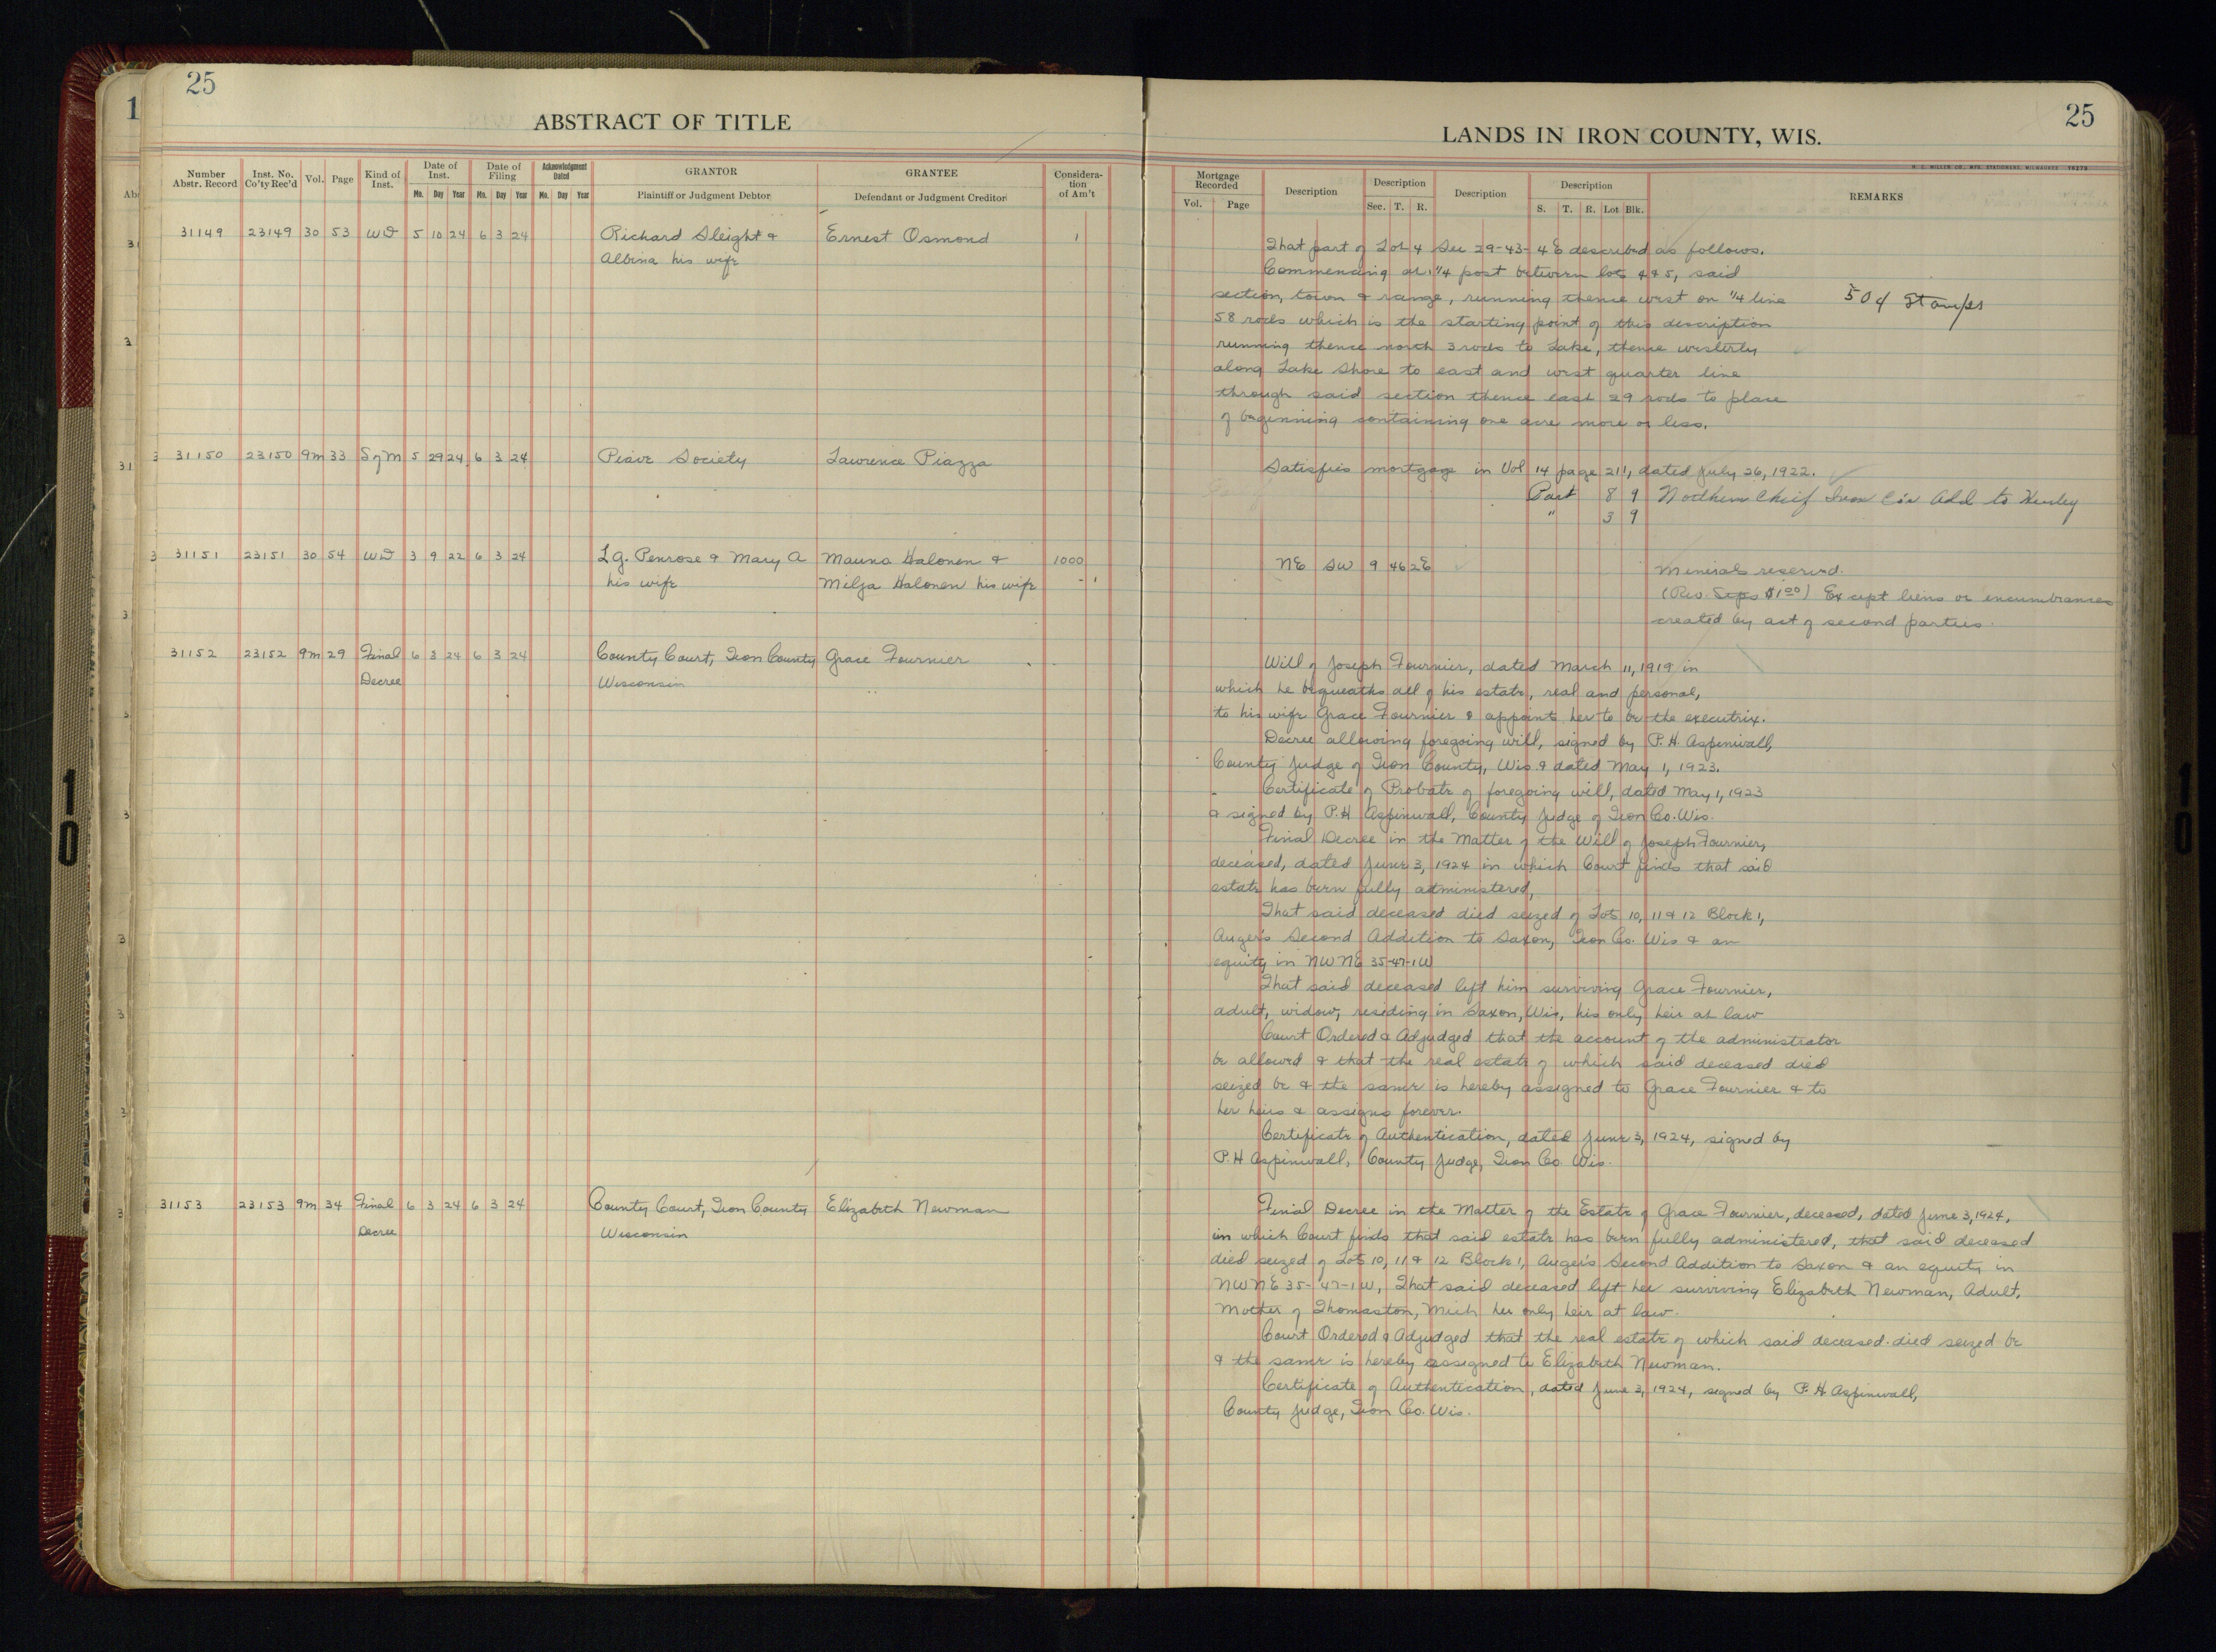 25
ABSTRACT OF TITLE
Number Abstr. Record
Inst. No. Co'ty Rec'd
Vol.
Page
Kind of Inst.
Date of Inst.
Mo. Day Year
Date of Filing
Mo. Day Year
Acknowledgment Dated
Mo. Day Year
GRANTOR
Plaintiff or Judgment Debtor
GRANTEE
Defendant or Judgment Creditor
Considera-
tion
of Am't
31149 23149 30 53 WD 5 10 24 6 3 24 Richard Sleight & Ernest Osmond 1
Albina his wife
31150 23150 9m 33 S of M 5 29 24 6 3 24 Piave Society Lawrence Piazza
31151 23151 30 54 WD 3 9 22 6 3 24 L.G. Penrose & Mary A Mauno Halonen & 1000
his wife Milja Halonen his wife
31152 23152 9m 29 Final 6 3 24 6 3 24 County Court, Iron County Grace Fournier
Decree Wisconsin
31153 23153 9m 34 Final 6 3 24 6 3 24 County Court, Iron County Elizabeth Newman
Decree Wisconsin
25
LANDS IN IRON COUNTY, WIS.
Mortgage Recorded
Vol. Page
Description
Description
Sec. T. R.
Description
Description
S. T. R. Lot Blk.
REMARKS
That part of Lot 4 Sec 29-43-4E described as follows.
Commencing at 1/4 post between lots 4 & 5, said
section, town & range, running thence west on 1/4 line 50¢ Stamps
58 rods which is the starting point of this description
running thence north 3 rods to Lake, thence westerly
along Lake Shore to east and west quarter line
through said section thence east 29 rods to place
of beginning containing one acre more or less.
Satisfies mortgage in Vol 14 page 211, dated July 26, 1922.
Part 8 9 Northern Chief Iron Co's Add to Hurley
" 3 9
NE SW 9 46 2E Minerals reserved.
(Rev. Stps $1.00) Except liens or encumbrances
created by act of second parties.
Will of Joseph Fournier, dated March 11, 1919 in
which he bequeaths all of his estate, real and personal,
to his wife Grace Fournier & appoints her to be the executrix.
Decree allowing foregoing will, signed by P. H. Aspinwall,
County Judge of Iron County, Wis. & dated May 1, 1923.
Certificate of Probate of foregoing will, dated May 1, 1923
& signed by P. H Aspinwall, County Judge of Iron Co. Wis.
Final Decree in the Matter of the Will of Joseph Fournier,
deceased, dated June 3, 1924 in which Court finds that said
estate has been fully administered,
That said deceased died seized of Lots 10, 11 & 12 Block 1,
Auger's Second Addition to Saxon, Iron Co. Wis & an
equity in NWNE 35-47-1W
That said deceased left him surviving Grace Fournier,
adult, widow, residing in Saxon, Wis, his only heir at law
Court Ordered & Adjudged that the account of the administrator
be allowed & that the real estate of which said deceased died
seized be & the same is hereby assigned to Grace Fournier & to
her heirs & assigns forever.
Certificate of Authentication, dated June 3, 1924, signed by
P. H Aspinwall, County Judge, Iron Co Wis.
Final Decree in the Matter of the Estate of Grace Fournier, deceased, dated June 3, 1924,
in which Court finds that said estate has been fully administered, that said deceased
died seized of Lots 10, 11 & 12 Block 1, Auger's Second Addition to Saxon & an equity in
NWNE 35-47-1W, That said deceased left her surviving Elizabeth Newman, Adult,
Mother of Thomaston, Mich her only heir at law.
Court Ordered & Adjudged that the real estate of which said deceased died seized be
& the same is hereby assigned to Elizabeth Newman.
Certificate of Authentication, dated June 3, 1924, signed by P. H. Aspinwall,
County Judge, Iron Co. Wis.